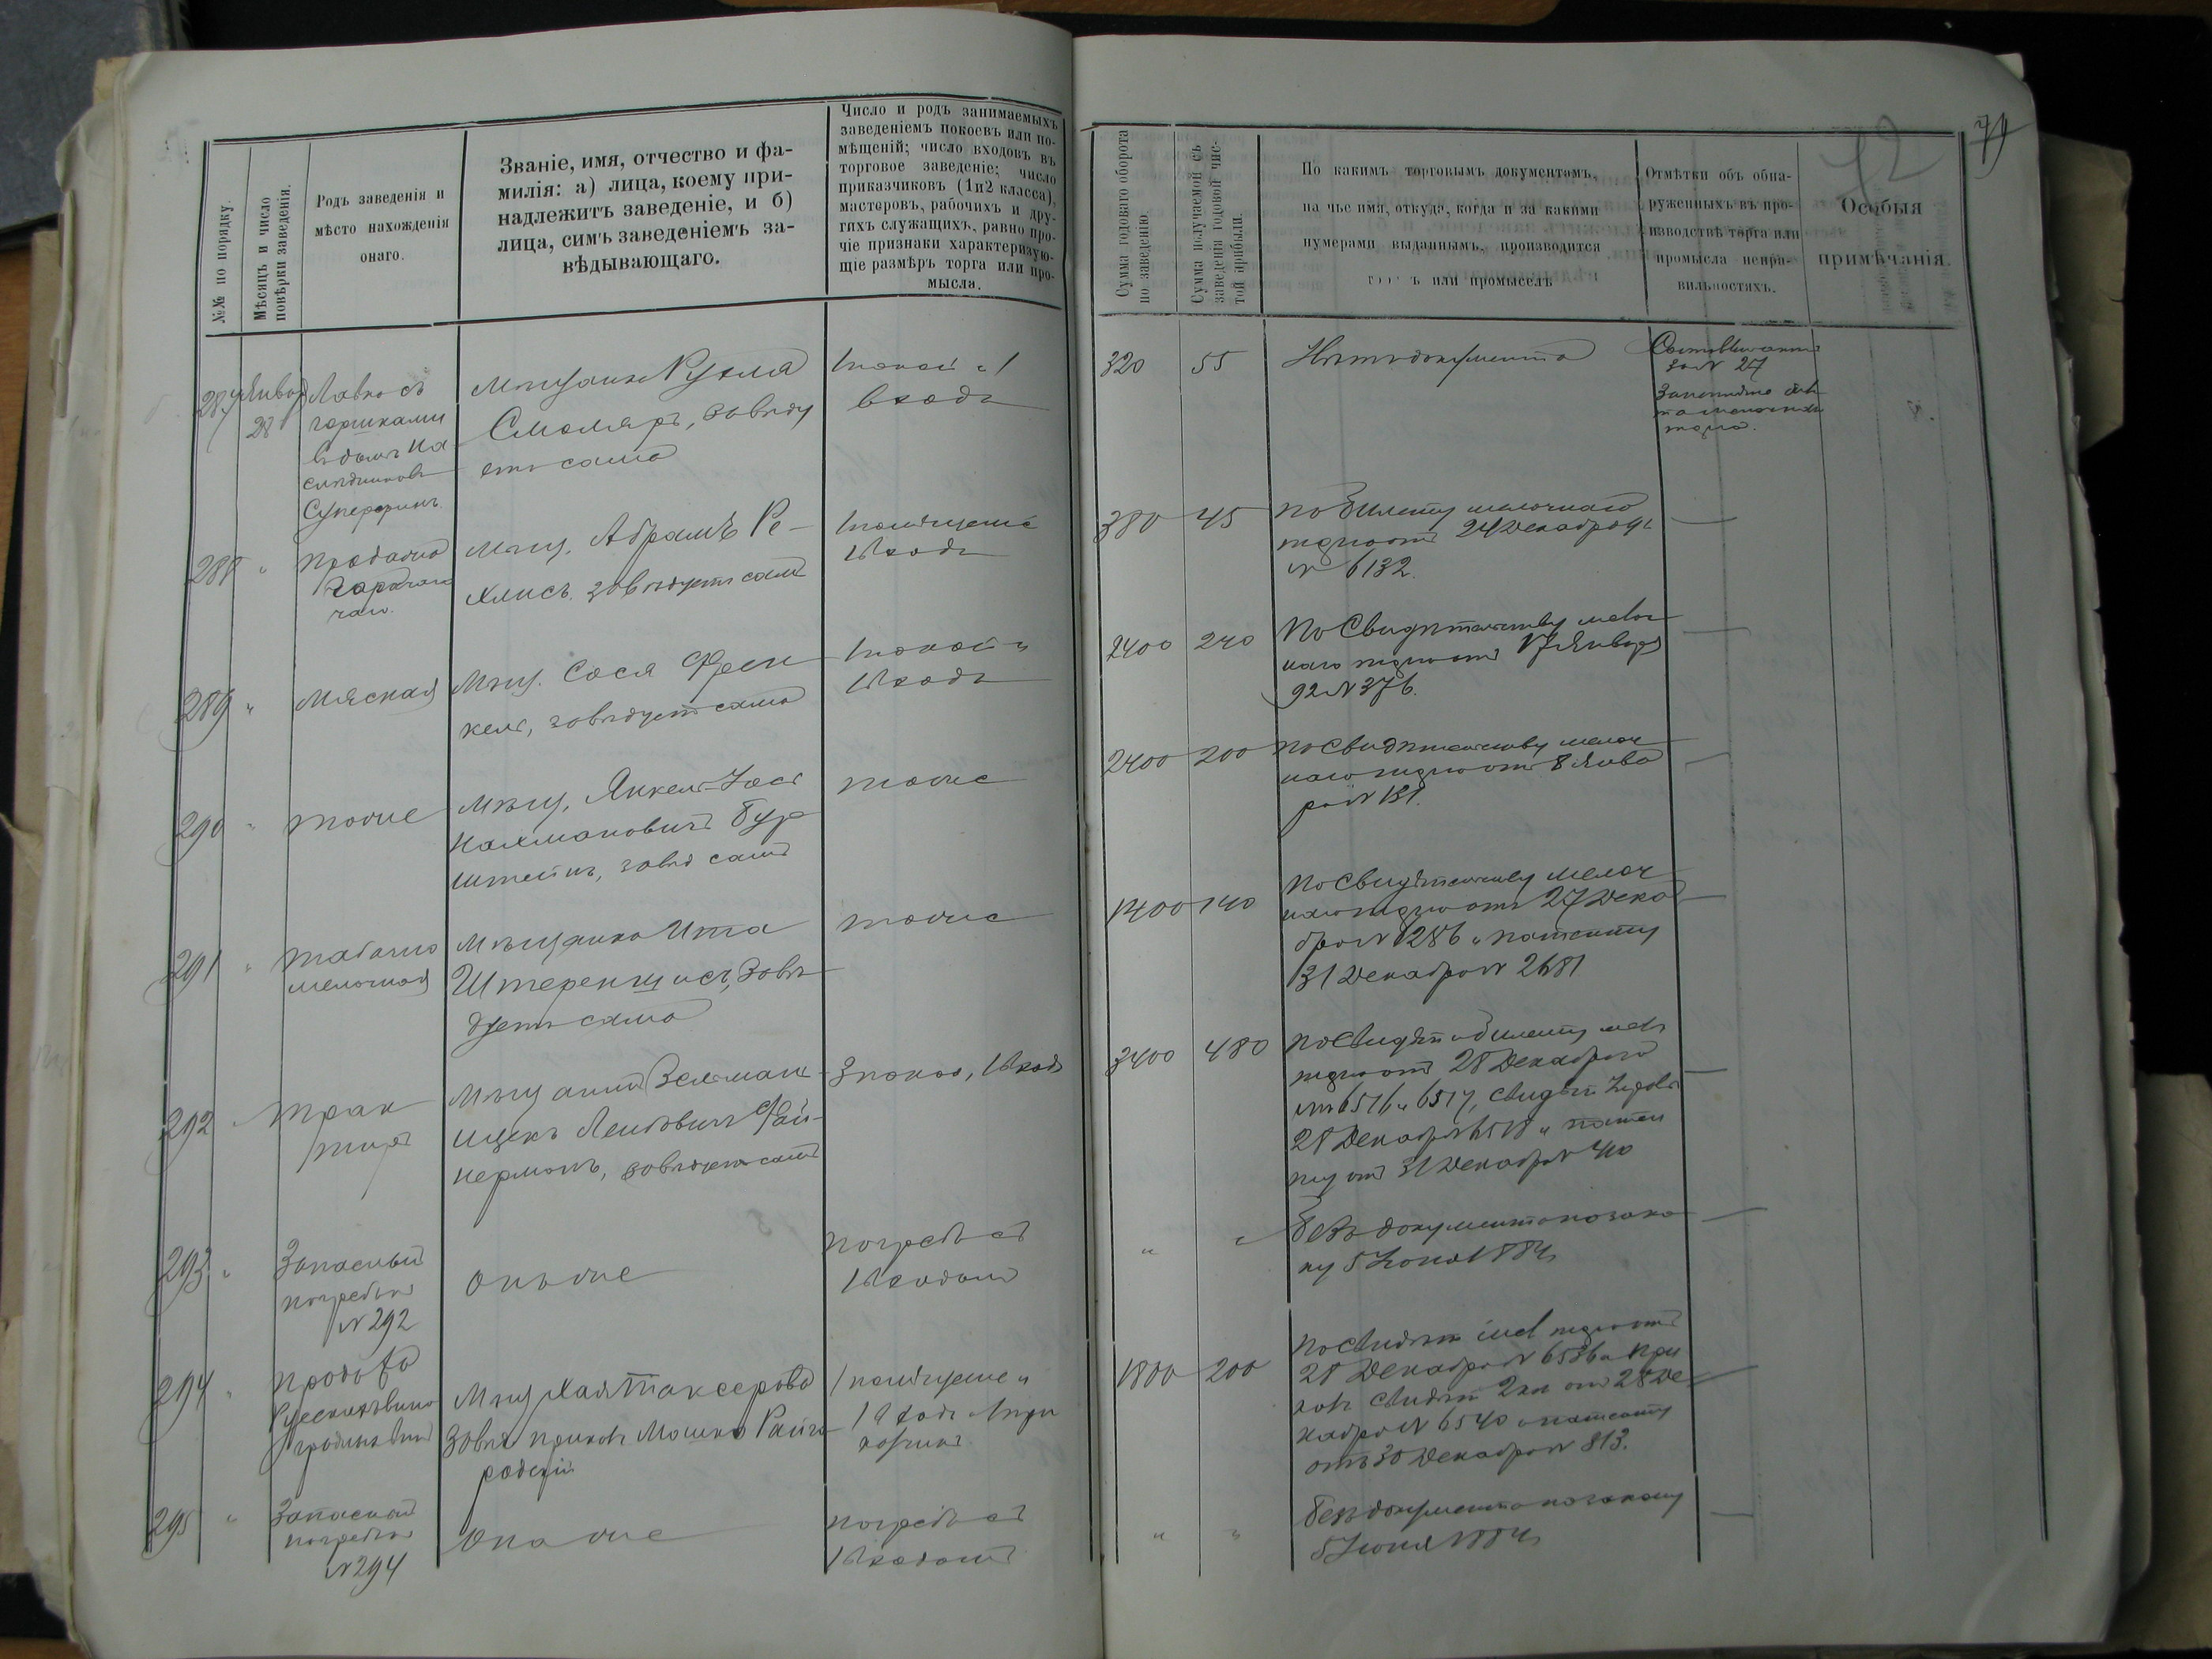 №№ по порядку.
Мѣсяцъ и число
повѣрки заведенія.
Родъ заведенія и
мѣсто нахожденія
онаго.
Званіе, имя, отчество и фа-
милія: а) лица, коему при-
надлежитъ заведеніе, и б)
лица, симъ заведеніемъ за-
вѣдывающаго.
Число и родъ занимаемыхъ
заведеніемъ покоевъ или по-
мѣщеній; число входовъ въ
торговое заведеніе; число
приказчиковъ (1и2 класса),
мастеровъ, рабочихъ и дру-
гихъ служащихъ, равно про-
чіе признаки характеризую-
щіе размѣръ торга или про-
мысла.
Сумма годоваго оборота
по заведенію.
Сумма получаемой съ
заведенія годовой чис-
той прибыли.
По какимъ торговымъ документамъ,
на чье имя, откуда, когда и за какими
нумерами выданнымъ, производится
или промыселъ
Отмѣтки объ обна-
руженныхъ въ про-
изводствѣ торга или
промысла непра-
вильностяхъ.
Особыя
примѣчанія.
72
287
Январ
28
Лавка съ
горшками
въ домѣ На
слѣдниковъ
Суперфинъ.
Мѣщанка Рухля
Смоляръ, завѣду
етъ сама
1 покой и 1
входъ
320
55
Нѣтъ документа
за № 27
288 "
Продажа
горячаго
чаю.
Мѣщ. Абрамъ Ре-
хлисъ. завѣдуетъ самъ
1 помѣщеніе
1 входъ
380
45
по билету мелочнаго
торга отъ 24 Декабря 91
№ 6132.
289 "
Мясная
Мѣщ. Сося Френ
кель, завѣдуетъ сама
1 покой и
1 входъ
2400
240
По Свидѣтельству мелоч
наго торга отъ 17 Января
92 № 376.
290 "
тоже
Мѣщ. Янкель-Іось
Нахмановичъ Бур
штейнъ, завѣд самъ
тоже
2400
200
по свидѣтельству мелоч
наго торга отъ 8 Янва
ря №
291 "
табачно
мелочная
Мѣщанка Ита
Штеренщисъ, Завѣ
дуетъ сама
тоже
1400
140
по свидѣтельству мелоч
наго торга отъ 27 Дека
бря № 6286 и патенту
31 Декабря № 2681
292 "
Трак
тиръ
Мѣщанинъ Зельман
Ицекъ Лейбовичъ Фай-
нерманъ, завѣдуетъ самъ
3 покоя, 1 входъ
3400
480
по свидѣт и билету мел
торга отъ 28 Декабря
6516 и 6517, свидѣт
28 Декабря 6518 и патен
ту отъ 31 Декабря № 40
293 "
Запасный
погребъ
№ 292
Онъ же
погребъ съ
1 входомъ
" "
безъ документа по зако
ну 5 Іюня 1884 г
294 "
Продажа
Русскихъ вино
градныхъ винъ
Мѣщ Хая Таксерова
Завѣд приказ Мошко Райго
родскій
1 помѣщеніе и
1 входъ 1 при
казчикъ
1800
200
по свидѣт мел торга отъ
28 Декабря № 6536 и при
каз свидѣт 2 кл отъ 28 Де
кабря № 6540 и патенту
отъ 30 Декабря № 813.
295 "
Запасный
погребъ
№ 294
Она же
погребъ съ
1 входомъ
" "
безъ документа по закону
5 Іюня 1884 г